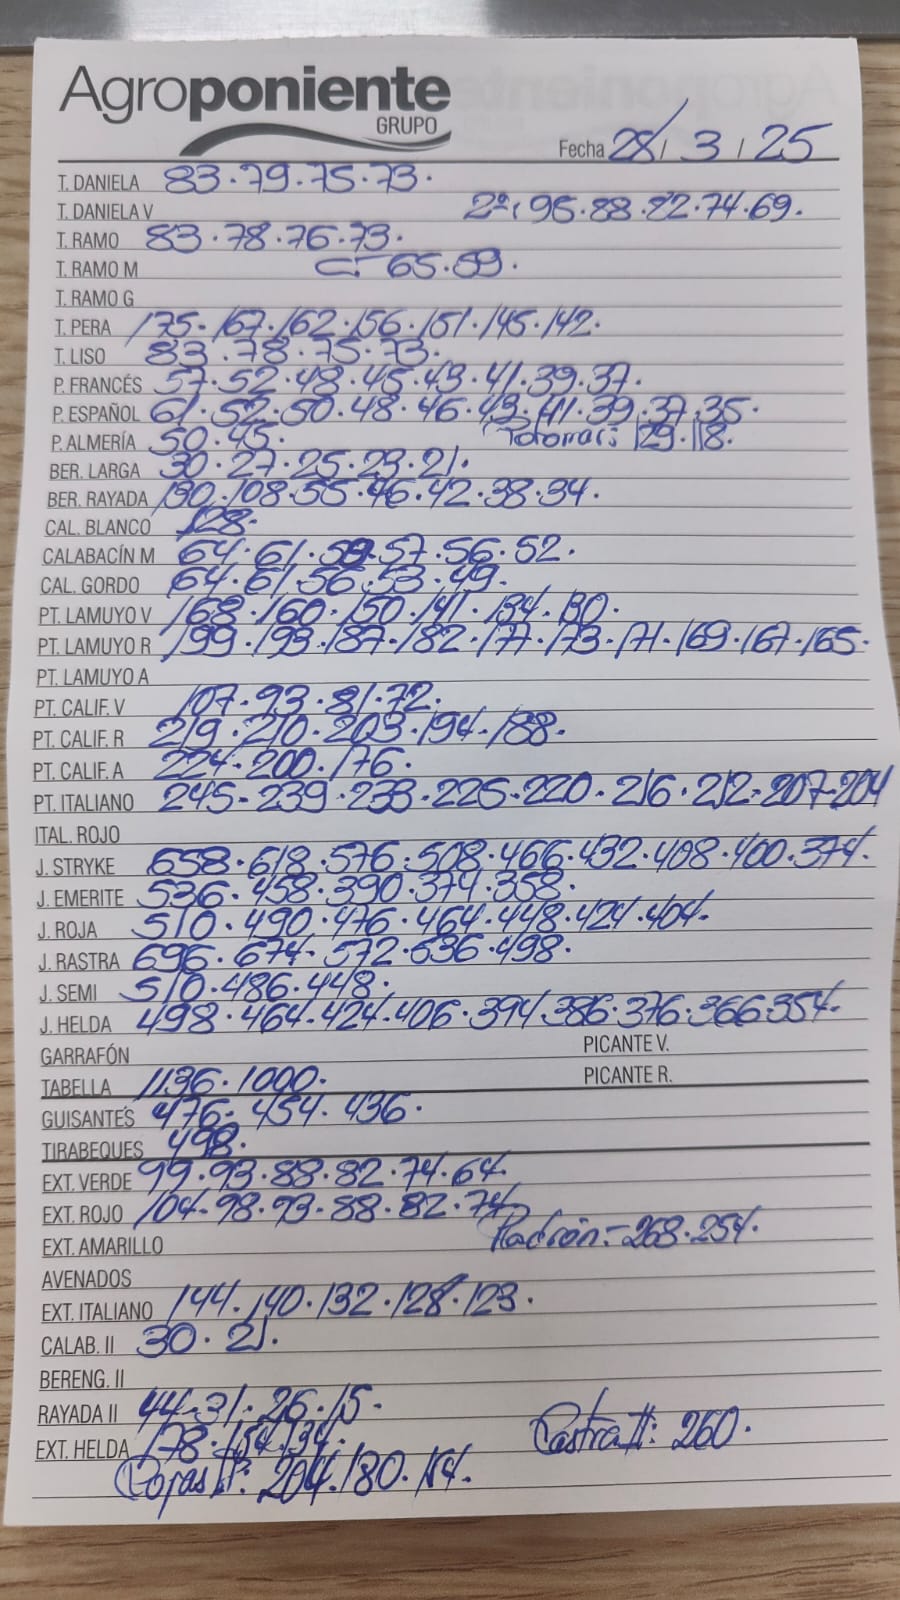 Agroponiente
GRUPO
Fecha 28/ 3 / 25
T. DANELA 83.79.75.73.
T. DANIELA V 2ª: 95.88.82.74.69.
T. RAMO 83.78.76.73.
T. RAMO M C.- 65.59.
T. RAMO G
T. PERA 175.167.162.156.151.145.142.
T. LISO 83.78.75.73.
P. FRANCÉS 57.52.48.45.43.41.39.37.
P. ESPAÑOL 61.52.50.48.46.43.41.39.37.35.
P. ALMERÍA 50.45. 129.118.
BER. LARGA 30.27.25.23.21.
BER. RAYADA 130.108.55.46.42.38.34.
CAL. BLANCO 128.
CALABACÍN M 64.61.59.57.56.52.
CAL. GORDO 64.61.56.53.49.
PT. LAMUYO V 168.160.150.141.134.130.
PT. LAMUYO R 199.193.187.182.177.173.171.169.167.165.
PT. LAMUYO A
PT. CALIF. V 107.93.81.72.
PT. CALIF. R 219.210.203.194.188.
PT. CALIF. A 224.200.176.
PT. ITALIANO 245-239.233.225.220.216.212.207-204
ITAL. ROJO
J. STRYKE 658.618.576.508.466.432.408.400.374.
J. EMERITE 536.458.390.374.358.
J. ROJA 510.490.476.464.448.424.404.
J. RASTRA 696.674.572.536.498.
J. SEMI 510.486.448.
J. HELDA 498.464.424.406.394.386.376.366.354.
GARRAFÓN PICANTE V.
TABELLA 1136.1000. PICANTE R.
GUISANTES 476.454.436.
TIRABEQUES 498.
EXT. VERDE 99.93.88.82.74.64.
EXT. ROJO 104.98.93.88.82.74.
EXT. AMARILLO Padrón:-268.254.
AVENADOS
EXT. ITALIANO 144.140.132.128.123.
CALAB. II 30.21.
BERENG. II
RAYADA II 44.31.26.15.
EXT. HELDA 178.154.134. Rastra II: 260.
Rojas II: 204.180.154.